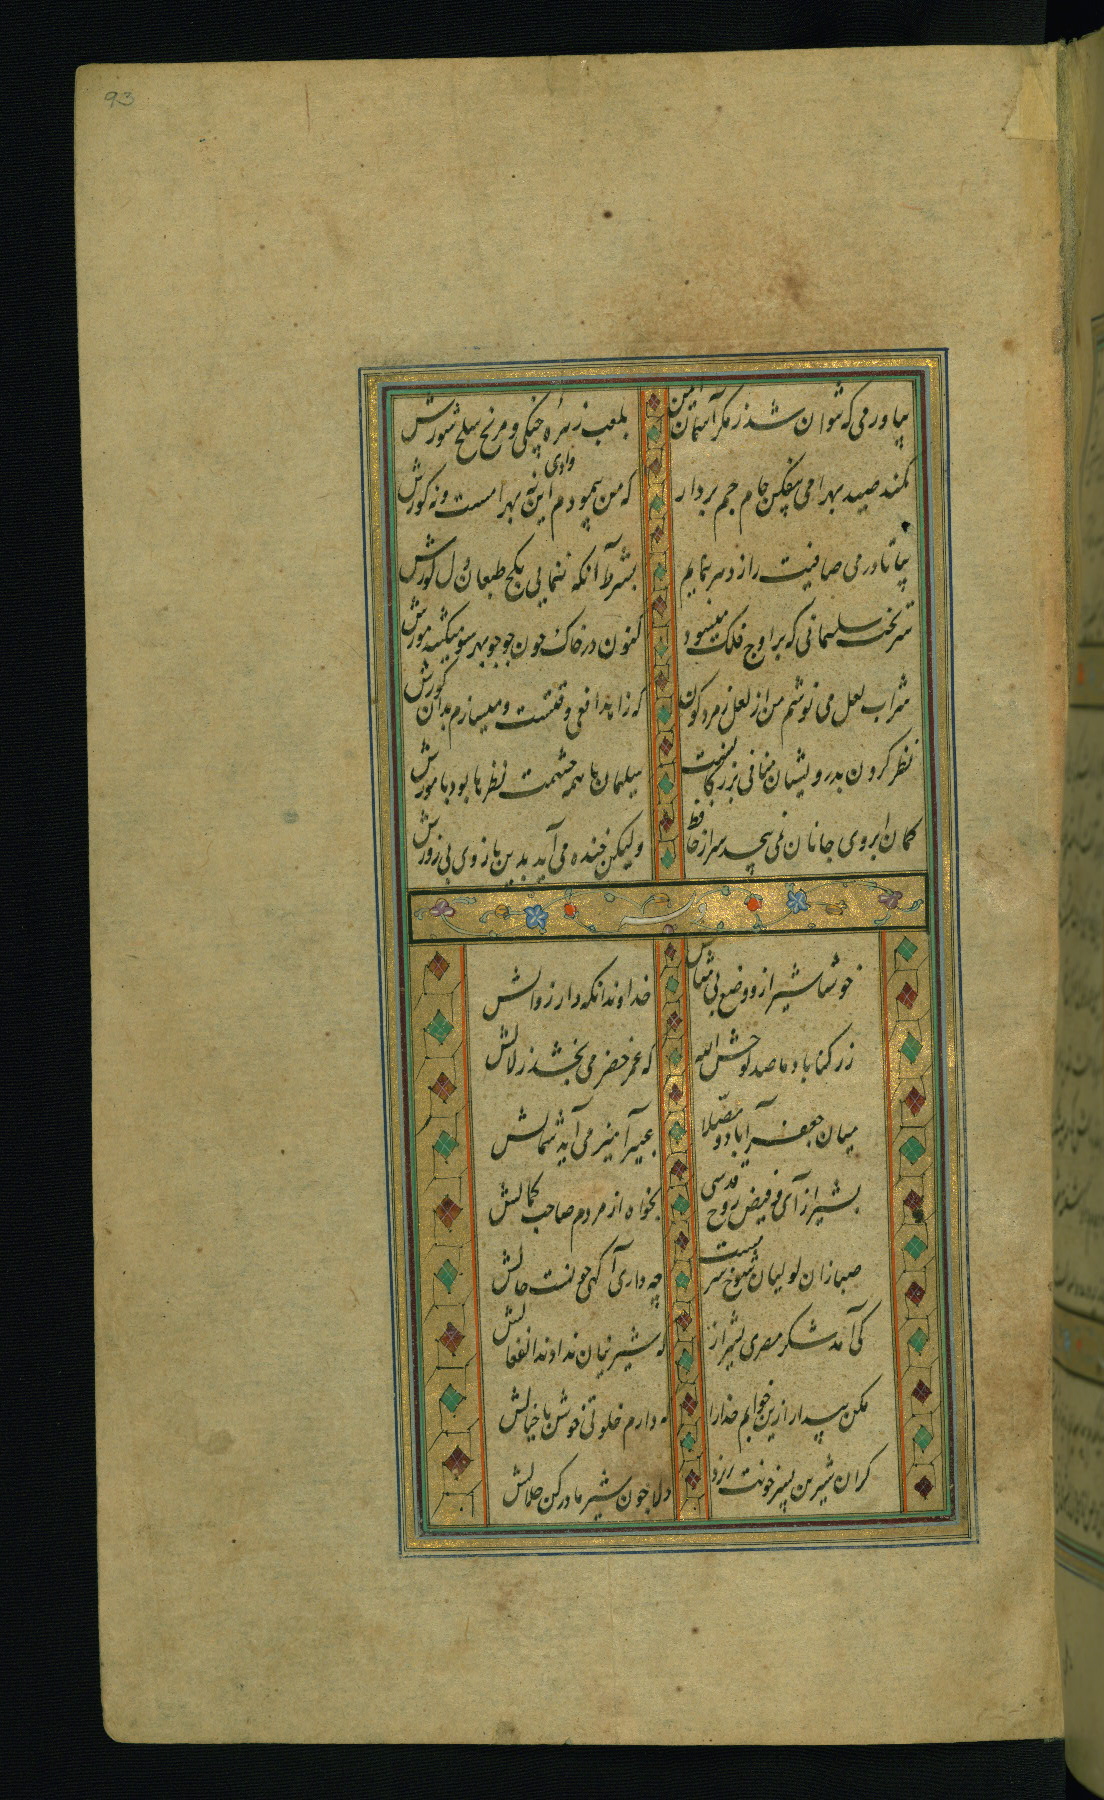 93
بیاور می که نتوان شد ز مکر آسمان ایمن
بلعب زهره چنکی و مریخ سلح شورش
کمند صید بهرامی بیفکن جام جم بردار
که من پیمودم این وادی نه بهرامست و نه کورش
بیا تا در می صافیت راز دهر بنمایم
بشرط آنکه ننمایی بکج طبعان دل کورش
تخت سلیمانی که بر اوج فلک
کنون در خاک چون جو جو بهر سو میکشد مورش
شراب لعل می نوشم من از لعل زمرد کون
که زاهد افعی وقتست و میسازم بدان کورش
نظر کردن بدرویشان منافی بزرکی نیست
سلیمان با همه حشمت نظرها بود با مورش
کمان ابروی جانان نمی پیچد سر از حافظ
ولیکن خنده می آید بدین بازوی بی زورش
خوشا شیراز و وضع بی مثالش
خداوندا نکه دار از زوالش
ز رکناباد ما صد لوحش الله
که عمر خضر می بخشد زلالش
میان جعفرآباد و مصلا
عبیرآمیز می آید شمالش
بشیراز آی و فیض روح قدسی
بخواه از مردم صاحب کمالش
صبا زان لولیان شوخ سرمست
چه داری آکهی چونست حالش
کی آمد شکر مصری بشیراز
که شیرینان ندادند انفعالش
مکن بیدار ازین خوابم خدا را
که دارم خلوتی خوش با خیالش
کر آن شیرین پسر خونت بریزد
دلا چون شیر مادر کن حلالش